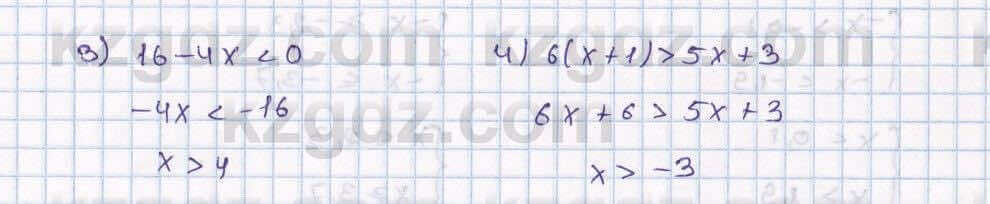 3) 16-4x<0
-4x<-16
x>4
4) 6(x+1)>5x+3
6x+6>5x+3
x>-3
kzgdz.com
kzgdz.com